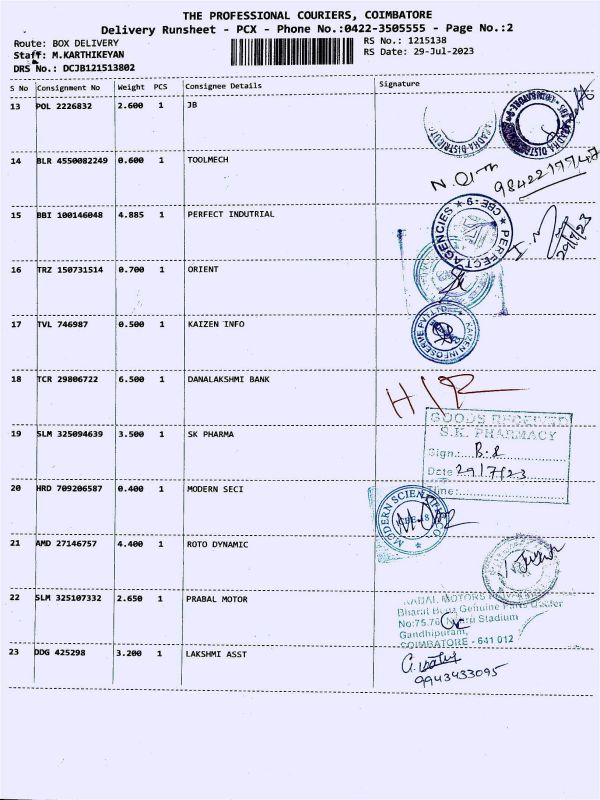 THE PROFESSIONAL COURIERS, COIMBATORE
Delivery Runsheet - PCX - Phone No.:0422-3505555 - Page No.:2
Route: BOX DELIVERY
RS No.: 1215138
Staff: M.KARTHIKEYAN
RS Date: 29-Jul-2023
DRS No.: DCJB121513802
S No Consignment No Weight PCS Consignee Details Signature
13 POL 2226832 2.600 1 JB
14 BLR 4550082249 0.600 1 TOOLMECH
9842217747
15 BBI 100146048 4.885 1 PERFECT INDUTRIAL
PERFECT AGENCIES ★ CBE-9 ★
29/7/23
16 TRZ 150731514 0.700 1 ORIENT
17 TVL 746987 0.500 1 KAIZEN INFO
KAIZEN INFOSERVE PVT LTD
18 TCR 29806722 6.500 1 DANALAKSHMI BANK
GOODS RECEIVED
S.K. PHARMACY
19 SLM 325094639 3.500 1 SK PHARMA
Sign.:
Date 29/7/23
Time:
20 HRD 709206587 0.400 1 MODERN SECI
MODERN SCIENTIFIC CO
CBE-18
21 AMD 27146757 4.400 1 ROTO DYNAMIC
22 SLM 325107332 2.650 1 PRABAL MOTOR
MOTORS
Bharat Benz Genuine Parts Dealer
No:75.76 Nehru Stadium
Gandhipuram,
COIMBATORE - 641 012
23 DDG 425298 3.200 1 LAKSHMI ASST
9943433095